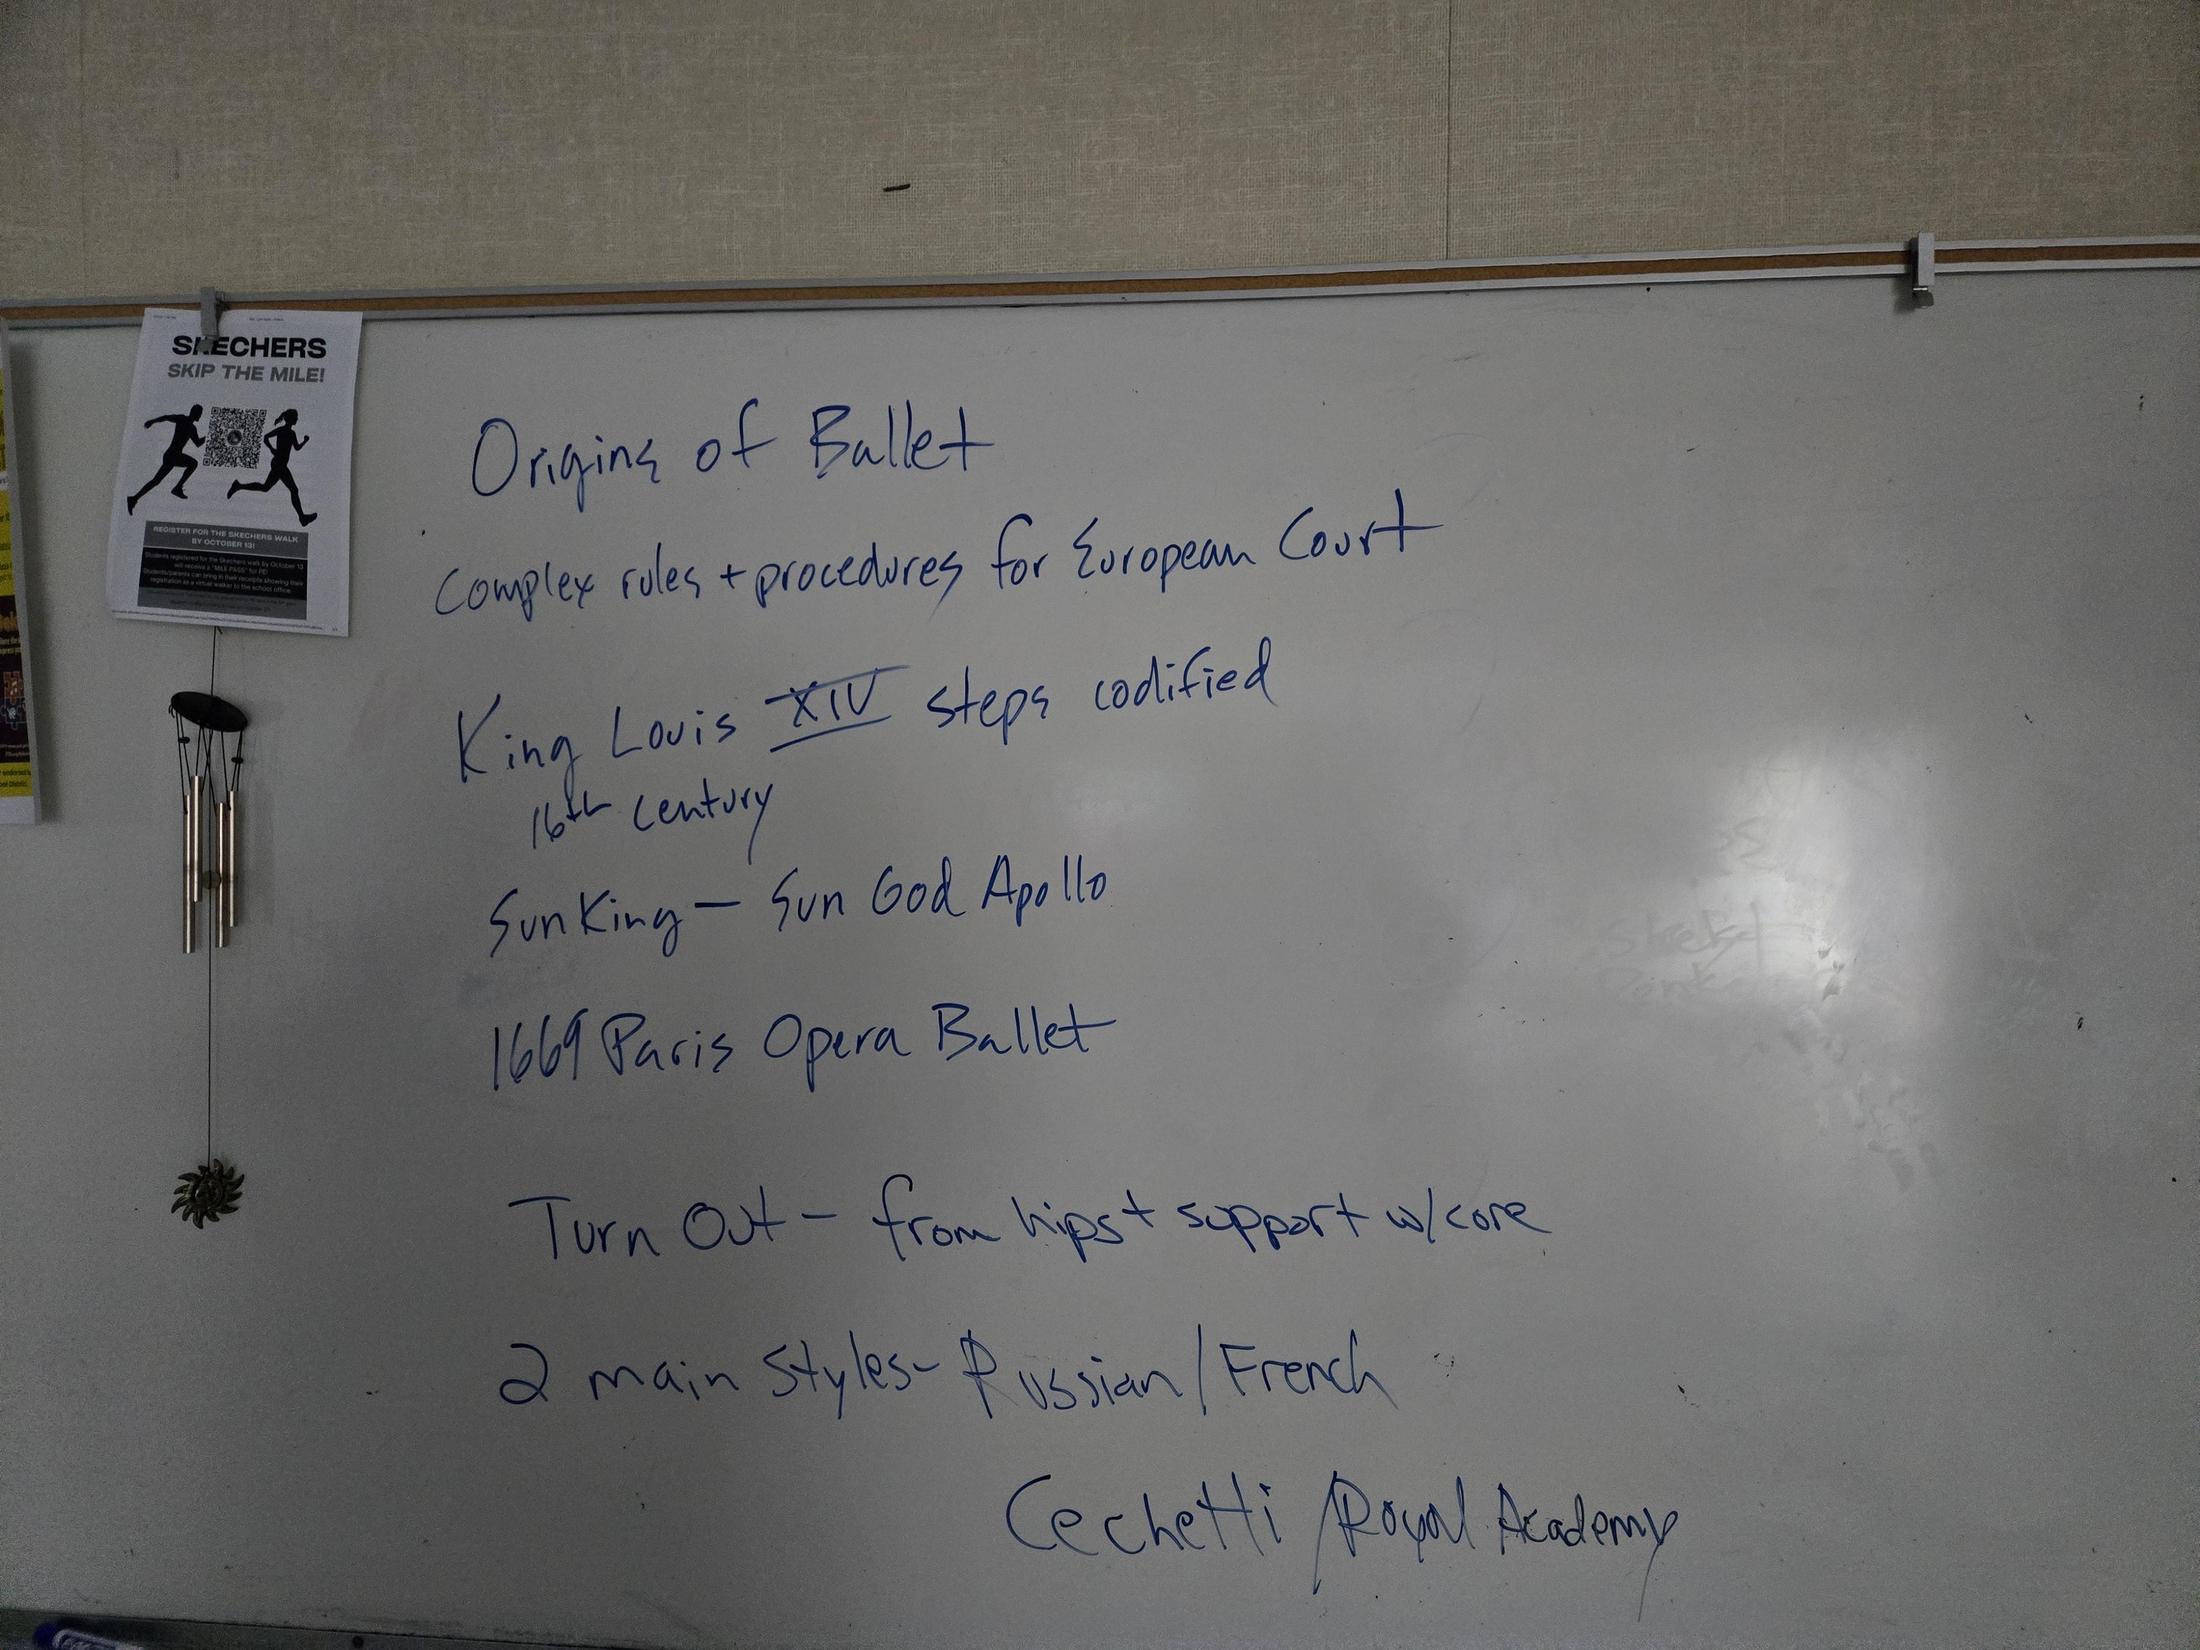 SKECHERS
SKIP THE MILE!
REGISTER FOR THE SKECHERS WALK
BY OCTOBER 13!
Students registered for the Skechers walk by October 13
will receive a "MILE PASS" for PE!
Students/parents can bring in their receipts showing their
registration as a virtual walker to the school office.
Origins of Ballet
Complex rules + procedures for European Court
King Louis XIV steps codified
16th century
Sun King — Sun God Apollo
1669 Paris Opera Ballet
Turn Out - from hips + support w/core
2 main styles - Russian / French
Cechetti / Royal Academy